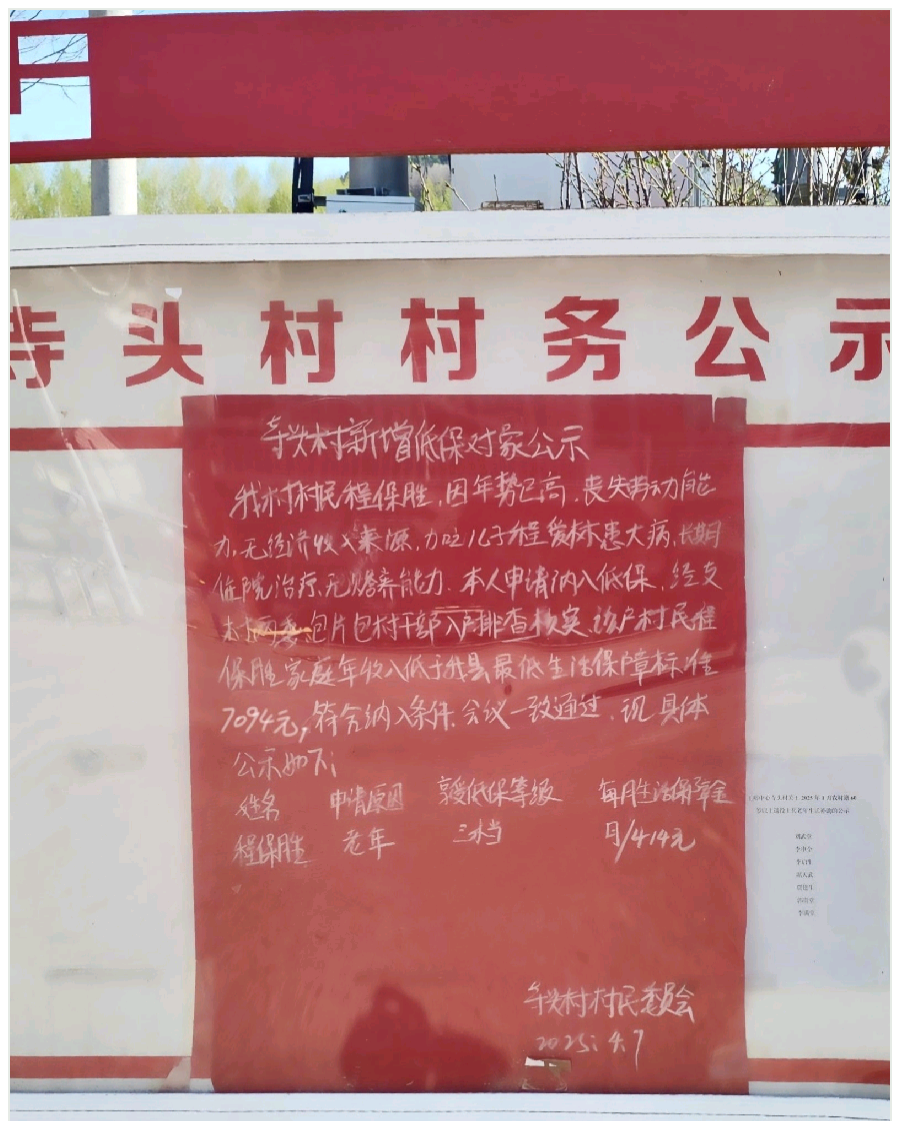 寺头村村务公示
寺头村新增低保对象公示
我村村民程保胜,因年势已高,丧失劳动能
力,无经济收入来源,加之儿子程爱林患大病,长期
住院治疗,无赡养能力.本人申请纳入低保,经支
村两委包片包村干部入户排查核实,该户村民程
保胜家庭年收入低于我县最低生活保障标准
7094元,符合纳入条件,会议一致通过,现具体
公示如下;
姓名 申请原因 享受低保等级 每月生活保障金
程保胜 老年 三档 月/414元
寺头村村民委员会
2025.4.7